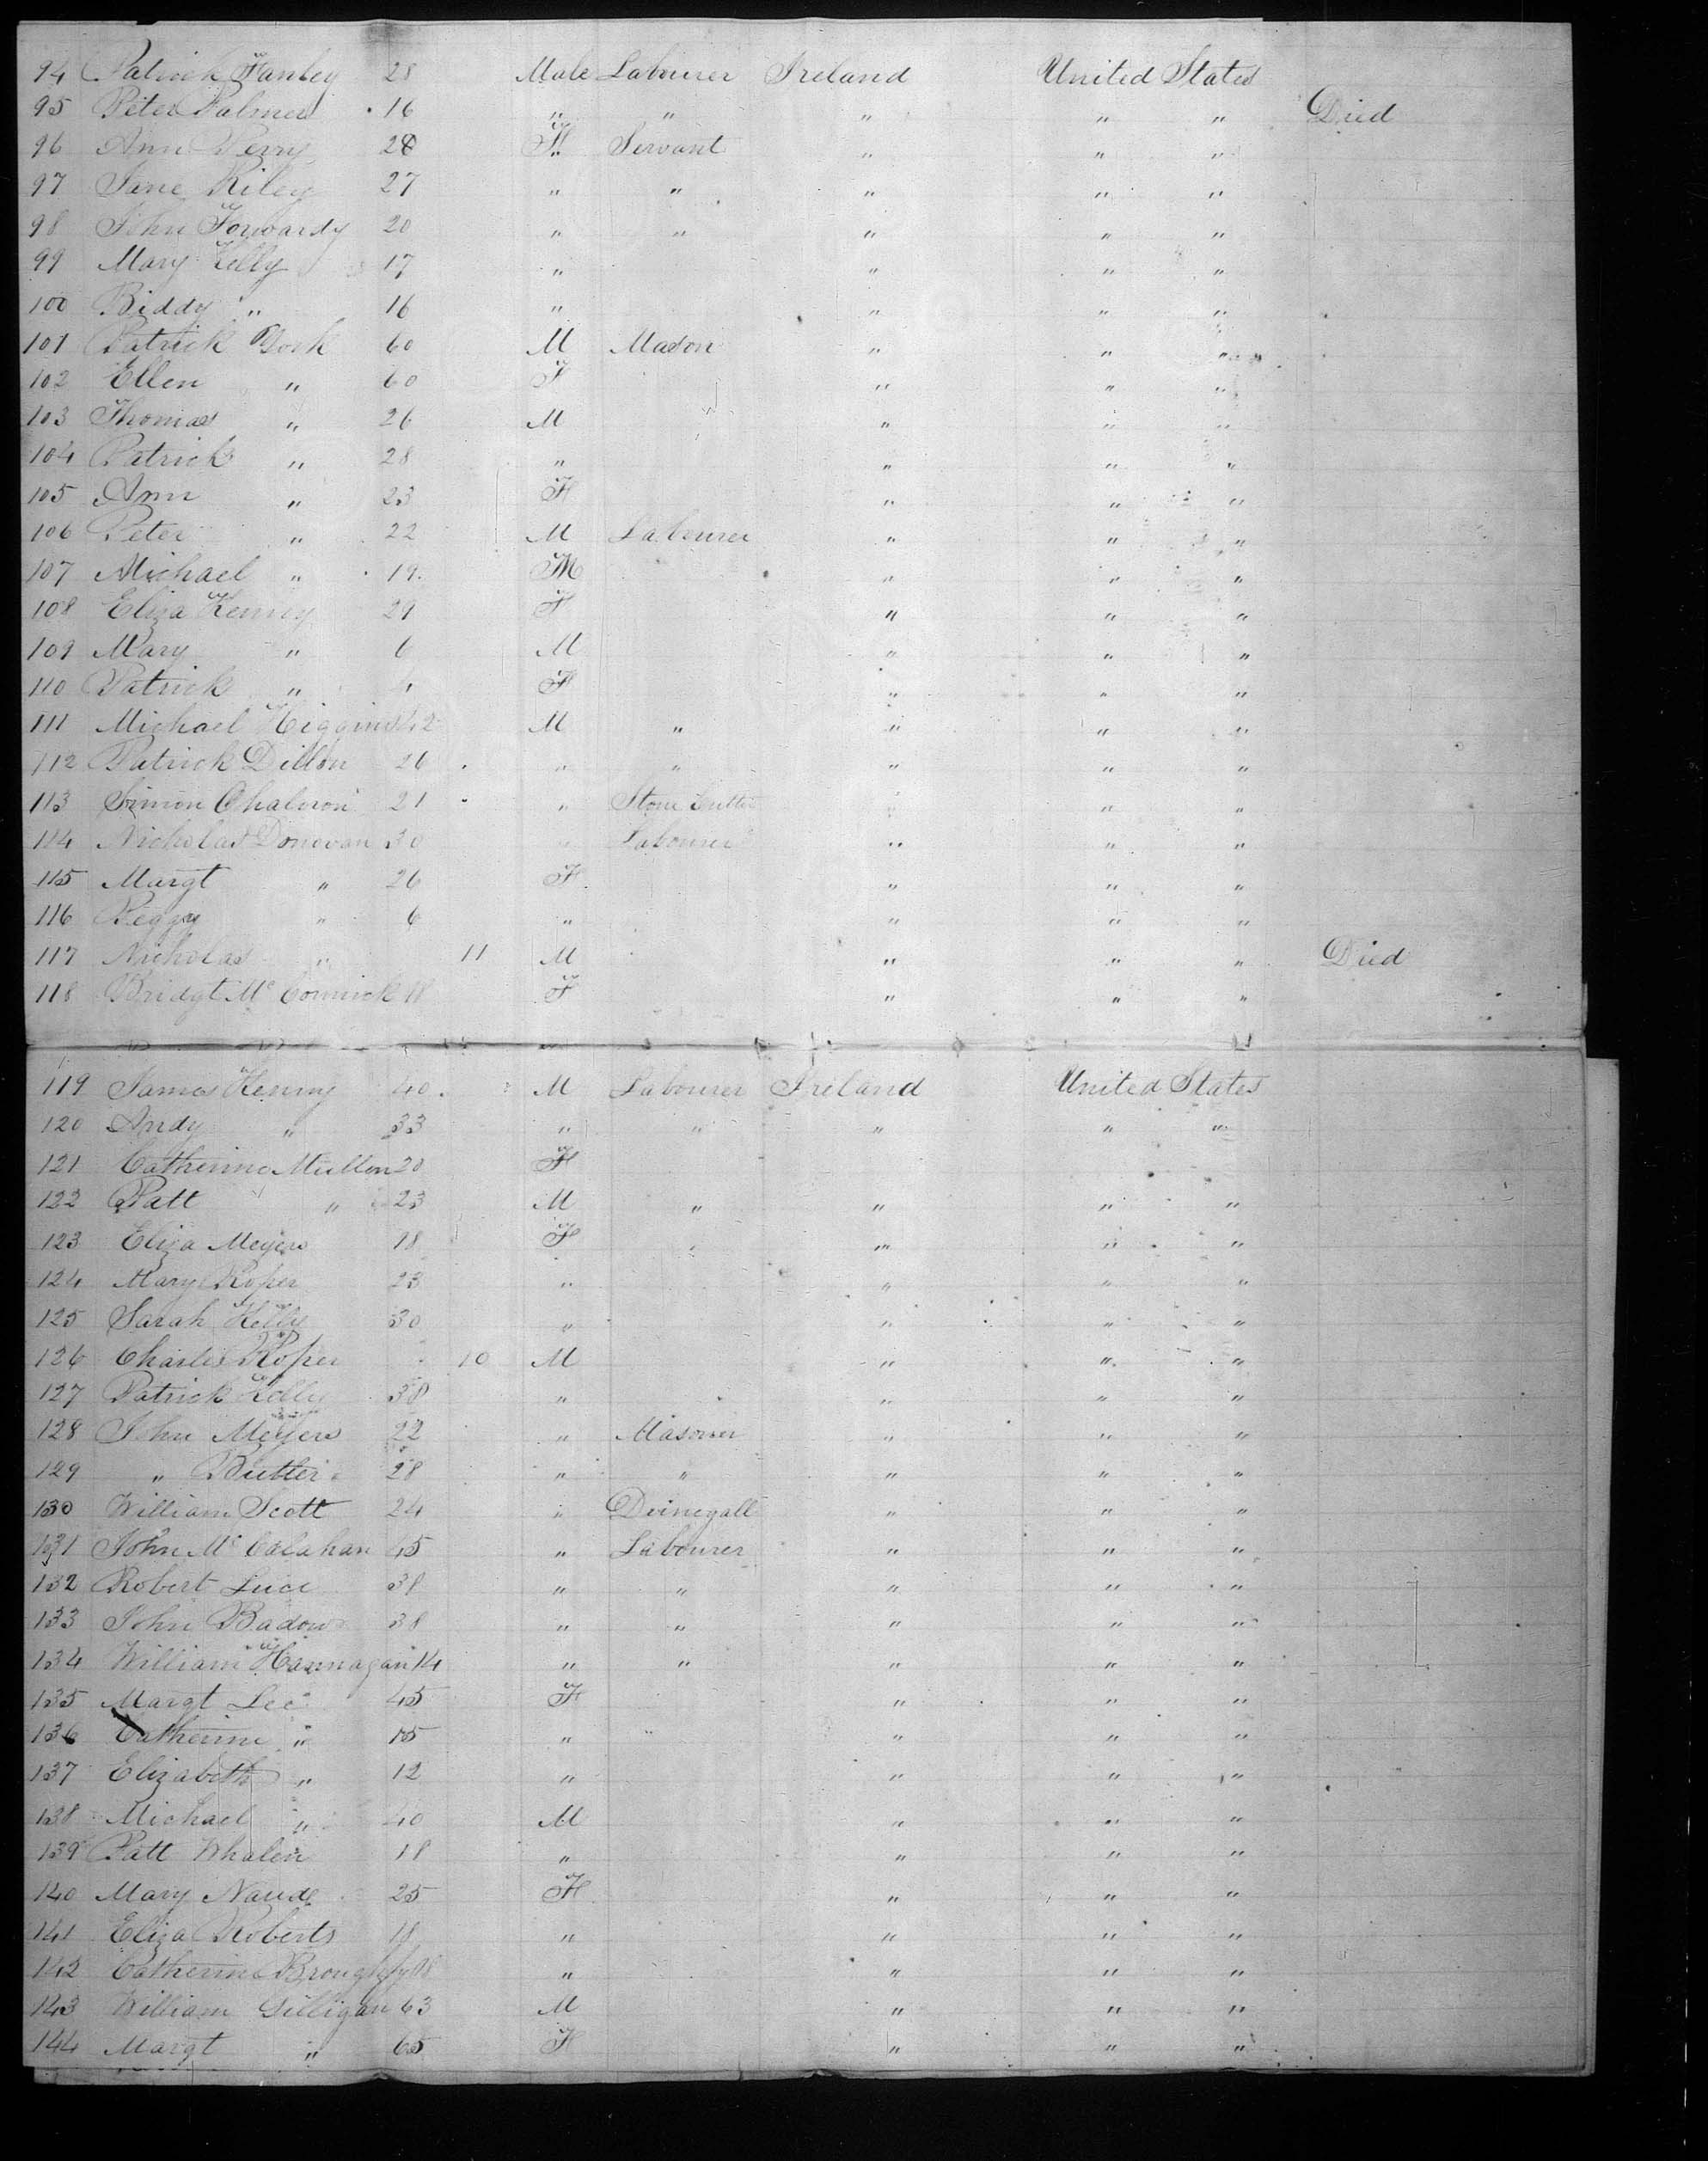 94 Patrick Fanley 28 Male Labourer Ireland United States
95 Peter Palmer 16 " " " " " Died
96 Ann Perry 28 F Servant " " "
97 Jane Riley 27 " " " " "
98 John Forwardy 20 " " " " "
99 Mary Kelly 17 " " " "
100 Biddy " 16 " " " "
101 Patrick York 60 M Mason " " "
102 Ellen " 60 F " " "
103 Thomas " 26 M " " "
104 Patrick " 28 " " " "
105 Ann " 23 F " " "
106 Peter " 22 M Labourer " " "
107 Michael " 19 M " " "
108 Eliza Kenny 29 F " " "
109 Mary " 6 M " " "
110 Patrick " 4 F " " "
111 Michael Higgins 42 M " " " "
112 Patrick Dillon 26 " " " " "
113 Simon 21 " Stone Cutter " " "
114 Nicholas Donovan 30 " Labourer " " "
115 Margt " 26 F " " "
116 Peggy " 6 " " " "
117 Nicholas " 11 M " " " Died
118 Bridgt Mc Cormick 18 F " " "
119 James Kenny 40 M Labourer Ireland United States
120 Andy " 33 " " " " "
121 Catherine Mullen 20 F
122 Patt " 23 M " " " "
123 Eliza Meyers 18 F " " " "
124 Mary Roper 23 " " " "
125 Sarah Kelly 30 " " " "
126 Charles Roper 10 M " " "
127 Patrick Kelly 38 " " " "
128 John Meyers 22 " Masoner " " "
129 " Butler 28 " " " " "
130 William Scott 24 " Dvinegall " " "
131 John Mc Calahan 45 " Labourer " " "
132 Robert Luce 38 " " " " "
133 John Badow 38 " " " " "
134 William Hannagan 14 " " " " "
135 Margt Lee 45 F " " "
136 Catherine " 15 " " " "
137 Elizabeth " 12 " " " "
138 Michael " 40 M " " "
139 Patt Whalen 18 " " " "
140 Mary Naude 25 F " " "
141 Eliza Roberts 18 " " " "
142 Catherine 18 " " " "
143 William Gilligan 63 M " " "
144 Margt " 65 F " " "